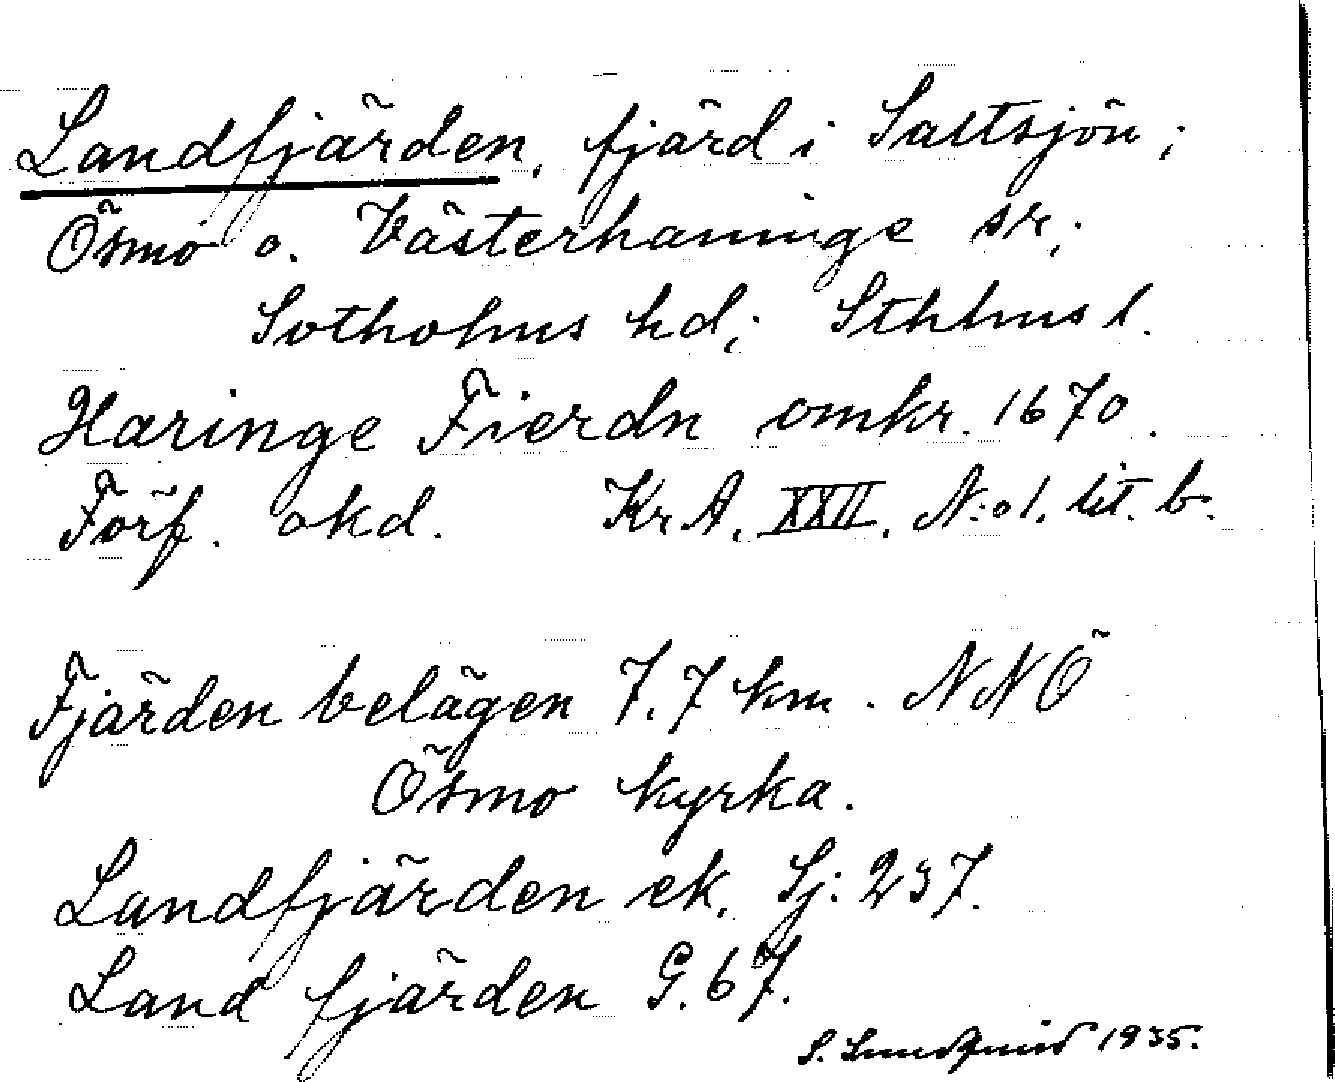 Landfjärden, fjärd i Saltsjön;
Ösmo o. Västerhaninge snr;
Sotholms hd; Sthlms l.
Haringe Fierdn omkr. 1670.
Förf. okd. Kr A, XXII, N:o 1. lit. b.
Fjärden belägen 7.7 km. NNÖ
Ösmo kyrka.
Landfjärden ek. Sj: 237.
Land fjärden G. 67.
S. Lundqvist 1935.